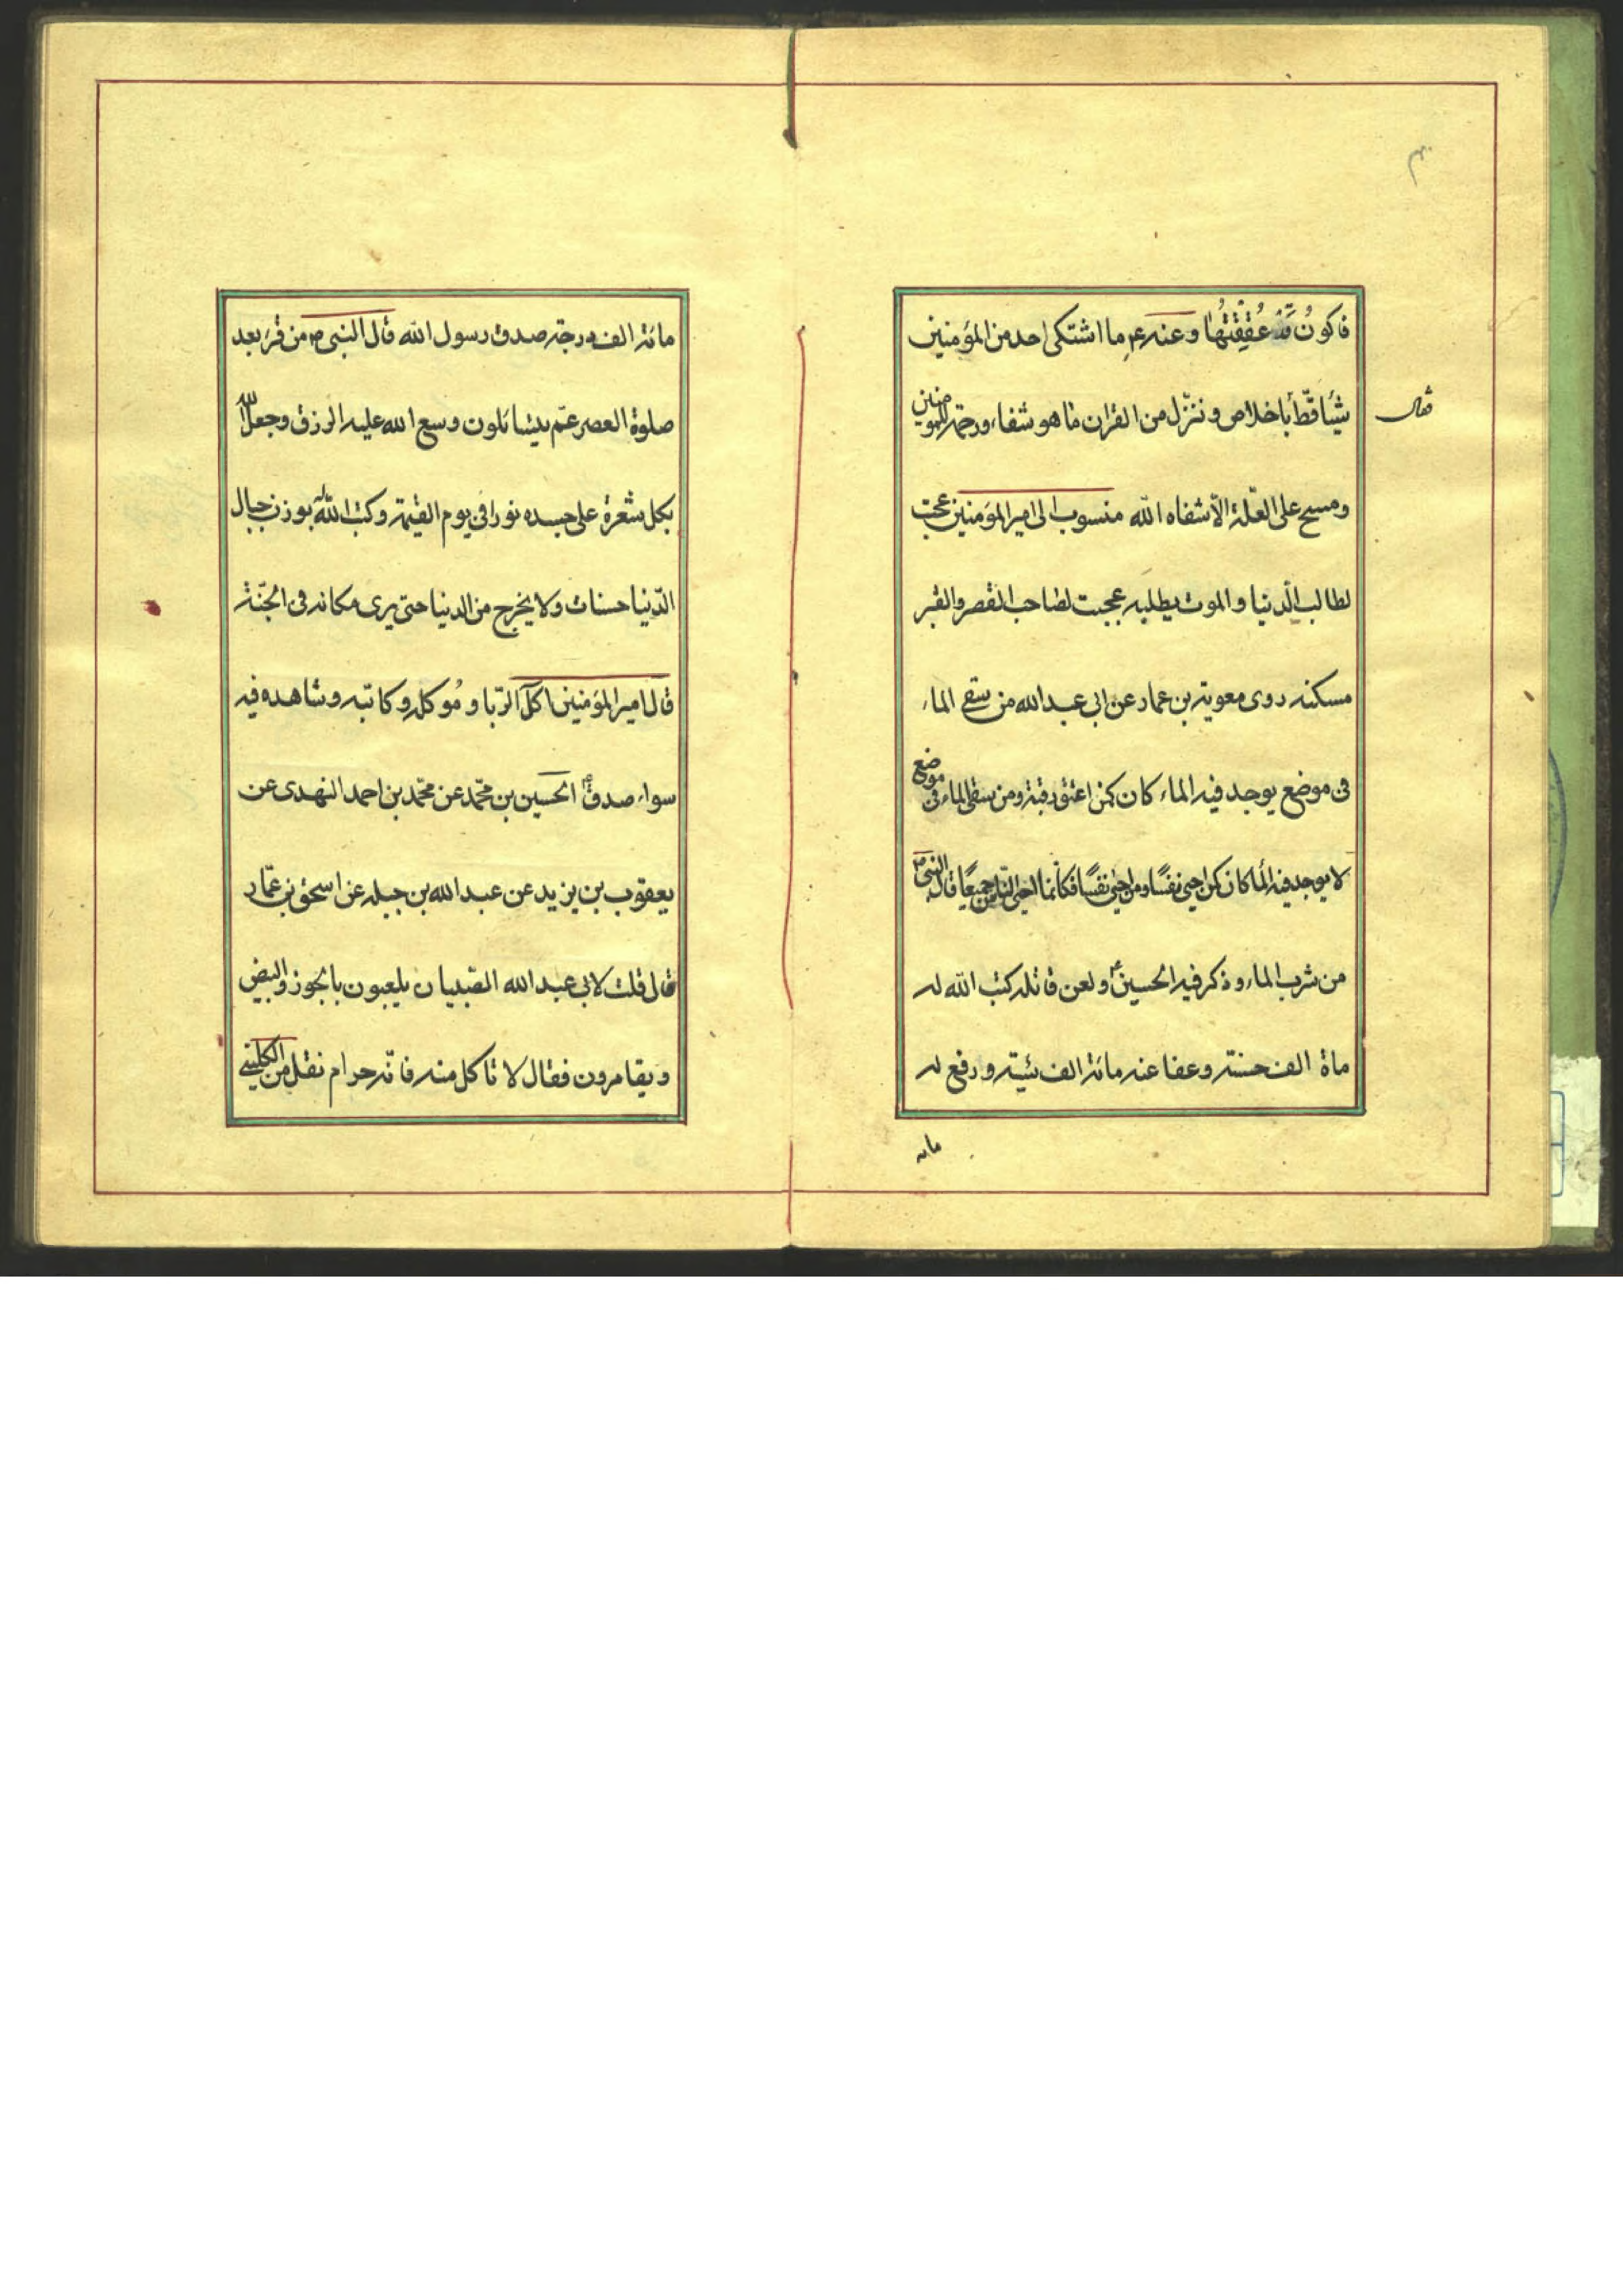 فاكونُ قد عُقِقتُها وعنه ع ما اشتكى احد من المؤمنين
شيئا قطّ باخلاص وننزّل من القران ما هو شفاء ورحمة للمومنين
فقال
ومسح على العلّة الّا شفاه الله منسوب الى امير المؤمنين عجبت
لطالب الدّنيا والموت يطلبه عجبت لصاحب القصر والقبر
مسكنه روى معوية بن عمار عن ابى عبد الله من سقى الماء
فى موضع يوجد فيه الماء كان كمن اعتق رقبة ومن سقى الماء فى موضع
لا يوجد فيه الما كان كمن احيى نفسًا ومن احيى نفسًا فكانّما احيى النّاس جميعًا قال النبى ص
من شرب الماء وذكر فيه الحسين ع ولعن قاتله كتب الله له
ماة الف حسنة وعفا عنه مائة الف سيئة ورفع له
مائه
مائة الف درجة صدق رسول الله قال النبى ص من قرء بعد
صلوة العصر عمّ يتسائلون وسع الله عليه الرزق وجعل الله
بكل شعرة على جسده نورا فى يوم القيمة وكتب الله له بوزن جبال
الدّنيا حسنات ولا يخرج من الدنيا حتى يرى مكانه فى الجنّة
قال امير المؤمنين اكل الرّبا و مُوكله وكاتبه وشاهده فيه
سواء صدق ع الحسين بن محمّد عن محمّد بن احمد النهدى عن
يعقوب بن يزيد عن عبد الله بن جبله عن اسحق بن عمّار
قال قلت لابى عبد الله الصّبيان يلعبون بالجوز والبيض
ويقامرون فقال لا تاكل منه فانّه حرام نقل من الكلينى